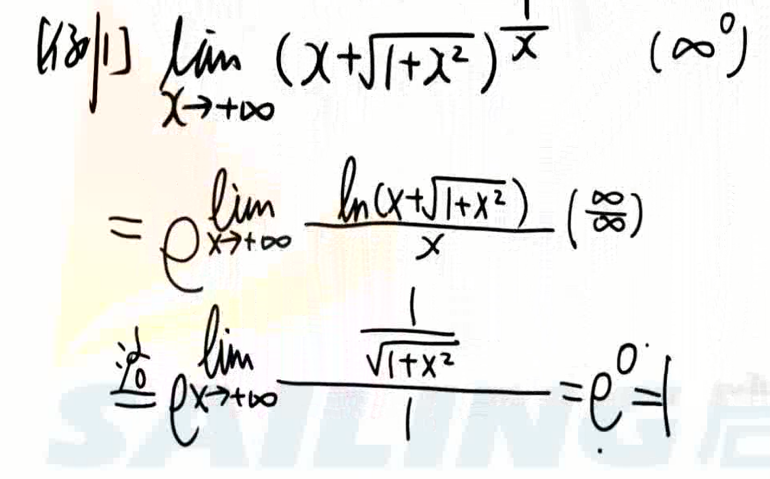 [例1] lim_{x→+∞} (x+√(1+x²))^{1/x} (∞⁰)
= e^{lim_{x→+∞} ln(x+√(1+x²))/x} (∞/∞)
洛= e^{lim_{x→+∞} (1/√(1+x²))/1} = e⁰ = 1
SAILING